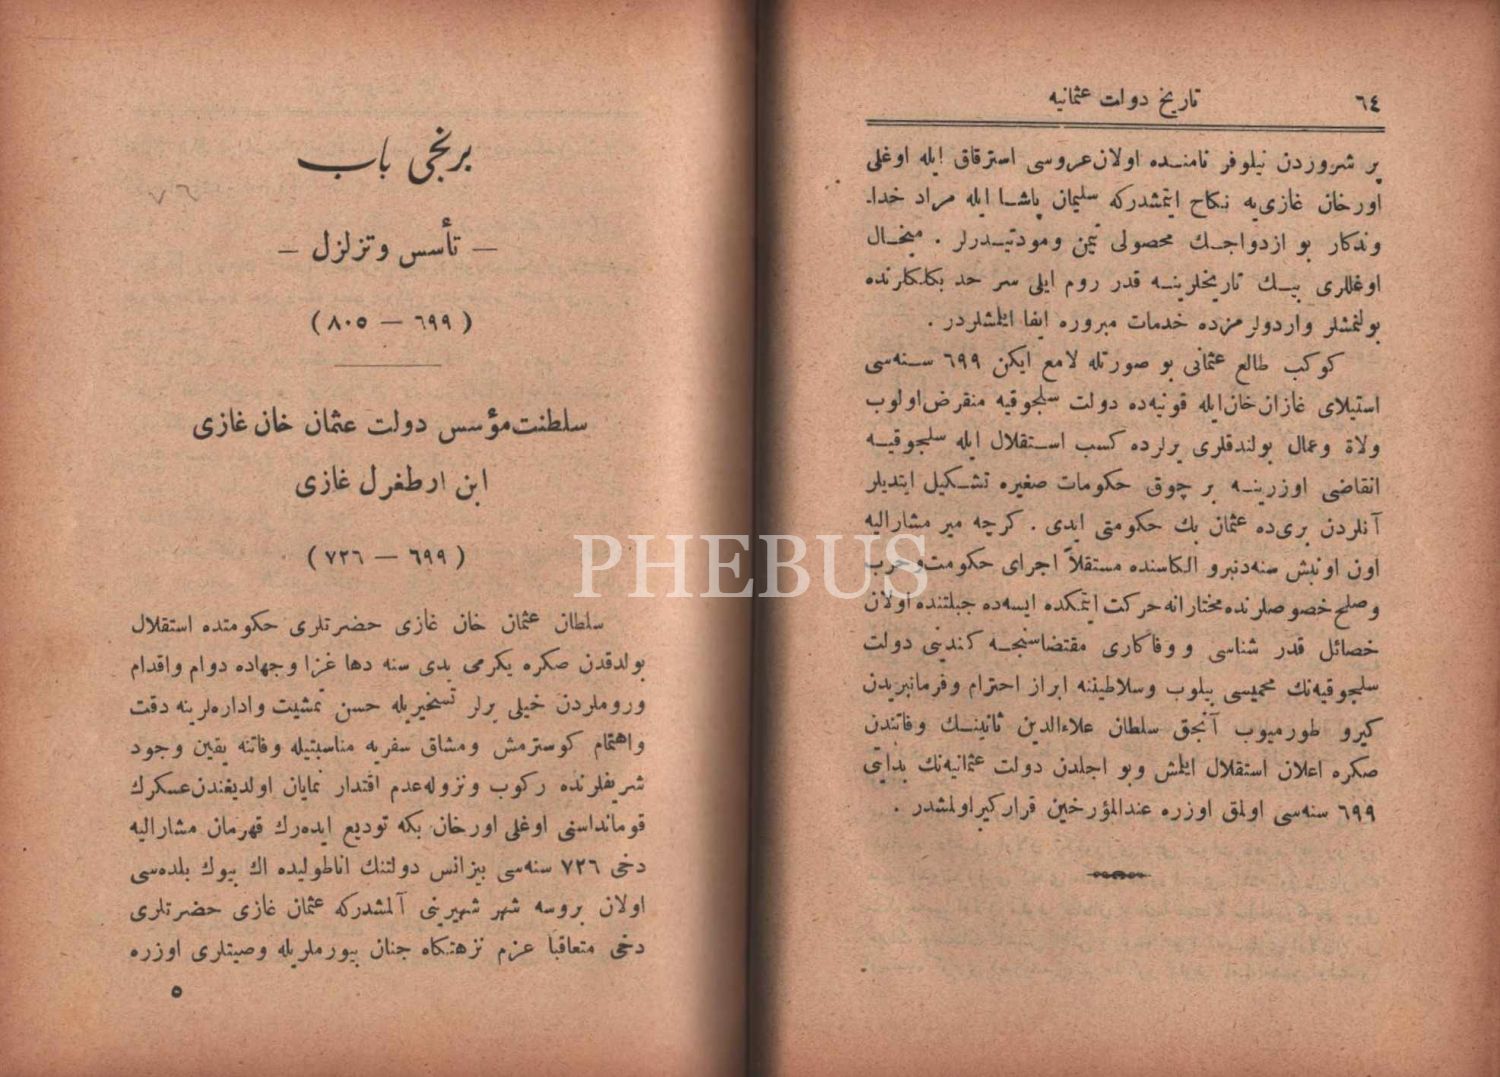 ٦٤
تاريخ دولت عثمانيه
پر شروردن نيلوفر نامنده اولان عروسى استرقاق ايله اوغلى
اورخان غازى‌يه نكاح ايتمشدركه سليمان پاشا ايله مراد خدا-
وندكار بو ازدواجك محصولى تيمن ومودتيدرلر . ميخال
اوغللرى بيك تاريخلرينه قدر روم ايلى سر حد بكلكلرنده
بولنمشلر واردولرمزده خدمات مبروره ايفا ايلمشلردر .
كوكب طالع عثمانى بو صورتله لامع ايكن ٦٩٩ سنه‌سى
استيلاى غازان خان ايله قونيه‌ده دولت سلجوقيه منقرض اولوب
ولاة وعمال بولندقلرى يرلرده كسب استقلال ايله سلجوقيه
انقاضى اوزرينه بر چوق حكومات صغيره تشكيل ايتديلر
آنلردن برى‌ده عثمان بك حكومتى ايدى . كرچه مير مشاراليه
اون اونبش سنه‌دنبرو الكاسنده مستقلاً اجراى حكومت وحرب
وصلح خصوصلرنده مختارانه حركت ايتمكده ايسه‌ده جبلتنده اولان
خصائل قدر شناسى ووفاكارى مقتضاسنجه كندينى دولت
سلجوقيه‌نك محميسى بيلوب وسلاطيننه ابراز احترام وفرمانبريدن
كيرو طورميوب آنجق سلطان علاءالدين ثانينك وفاتندن
صكره اعلان استقلال ايلمش وبو اجلدن دولت عثمانيه‌نك بدايتى
٦٩٩ سنه‌سى اولمق اوزره عندالمؤرخين قراركير اولمشدر .
برنجى باب
٧٦
— تأسس وتزلزل —
( ٦٩٩ — ٨٠٥ )
سلطنت مؤسس دولت عثمان خان غازى
ابن ارطغرل غازى
( ٦٩٩ — ٧٢٦ )
سلطان عثمان خان غازى حضرتلرى حكومتده استقلال
بولدقدن صكره يكرمى يدى سنه دها غزا وجهاده دوام واقدام
وروملردن خيلى يرلر تسخيريله حسن تمشيت واداره‌لرينه دقت
واهتمام كوسترمش ومشاق سفريه مناسبتيله وفاتنه يقين وجود
شريفلرنده ركوب ونزوله عدم اقتدار نمايان اولديغندن عسكرك
قومانداسنى اوغلى اورخان بكه توديع ايده‌رك قهرمان مشاراليه
دخى ٧٢٦ سنه‌سى بيزانس دولتنك اناطوليده اك بيوك بلده‌سى
اولان بروسه شهر شهيرينى آلمشدركه عثمان غازى حضرتلرى
دخى متعاقباً عزم نزهتكاه جنان بيورملريله وصيتلرى اوزره
٥
PHEBUS